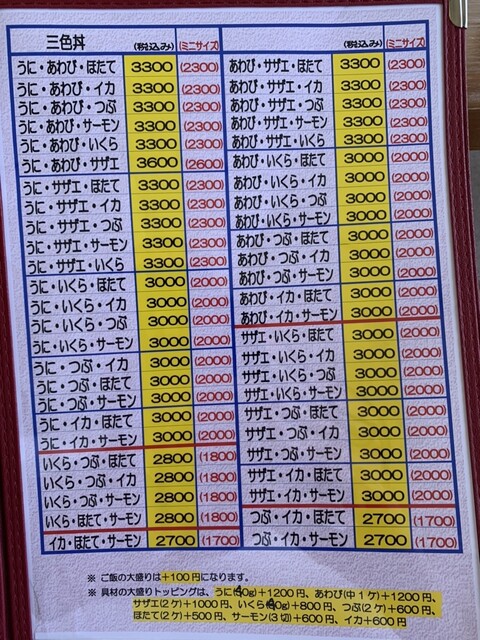 三色丼 (税込み) (ミニサイズ)
うに・あわび・ほたて 3300 (2300)
うに・あわび・イカ 3300 (2300)
うに・あわび・つぶ 3300 (2300)
うに・あわび・サーモン 3300 (2300)
うに・あわび・いくら 3300 (2300)
うに・あわび・サザエ 3600 (2600)
うに・サザエ・ほたて 3300 (2300)
うに・サザエ・イカ 3300 (2300)
うに・サザエ・つぶ 3300 (2300)
うに・サザエ・サーモン 3300 (2300)
うに・サザエ・いくら 3300 (2300)
うに・いくら・ほたて 3000 (2000)
うに・いくら・イカ 3000 (2000)
うに・いくら・つぶ 3000 (2000)
うに・いくら・サーモン 3000 (2000)
うに・つぶ・イカ 3000 (2000)
うに・つぶ・ほたて 3000 (2000)
うに・つぶ・サーモン 3000 (2000)
うに・イカ・ほたて 3000 (2000)
うに・イカ・サーモン 3000 (2000)
いくら・つぶ・ほたて 2800 (1800)
いくら・つぶ・イカ 2800 (1800)
いくら・つぶ・サーモン 2800 (1800)
いくら・ほたて・サーモン 2800 (1800)
イカ・ほたて・サーモン 2700 (1700)
(税込み) (ミニサイズ)
あわび・サザエ・ほたて 3300 (2300)
あわび・サザエ・イカ 3300 (2300)
あわび・サザエ・つぶ 3300 (2300)
あわび・サザエ・サーモン 3300 (2300)
あわび・サザエ・いくら 3300 (2300)
あわび・いくら・ほたて 3000 (2000)
あわび・いくら・イカ 3000 (2000)
あわび・いくら・つぶ 3000 (2000)
あわび・いくら・サーモン 3000 (2000)
あわび・つぶ・ほたて 3000 (2000)
あわび・つぶ・イカ 3000 (2000)
あわび・つぶ・サーモン 3000 (2000)
あわび・イカ・ほたて 3000 (2000)
あわび・イカ・サーモン 3000 (2000)
サザエ・いくら・ほたて 3000 (2000)
サザエ・いくら・イカ 3000 (2000)
サザエ・いくら・つぶ 3000 (2000)
サザエ・いくら・サーモン 3000 (2000)
サザエ・つぶ・ほたて 3000 (2000)
サザエ・つぶ・イカ 3000 (2000)
サザエ・つぶ・サーモン 3000 (2000)
サザエ・イカ・ほたて 3000 (2000)
サザエ・イカ・サーモン 3000 (2000)
つぶ・イカ・ほたて 2700 (1700)
つぶ・イカ・サーモン 2700 (1700)
※ ご飯の大盛りは+100円になります。
※ 具材の大盛りトッピングは、うに(40g)+1200円、あわび(中1ケ)+1200円、
サザエ(2ケ)+1000円、いくら(40g)+800円、つぶ(2ケ)+600円、
ほたて(2ケ)+500円、サーモン(3切)+600円、イカ+600円